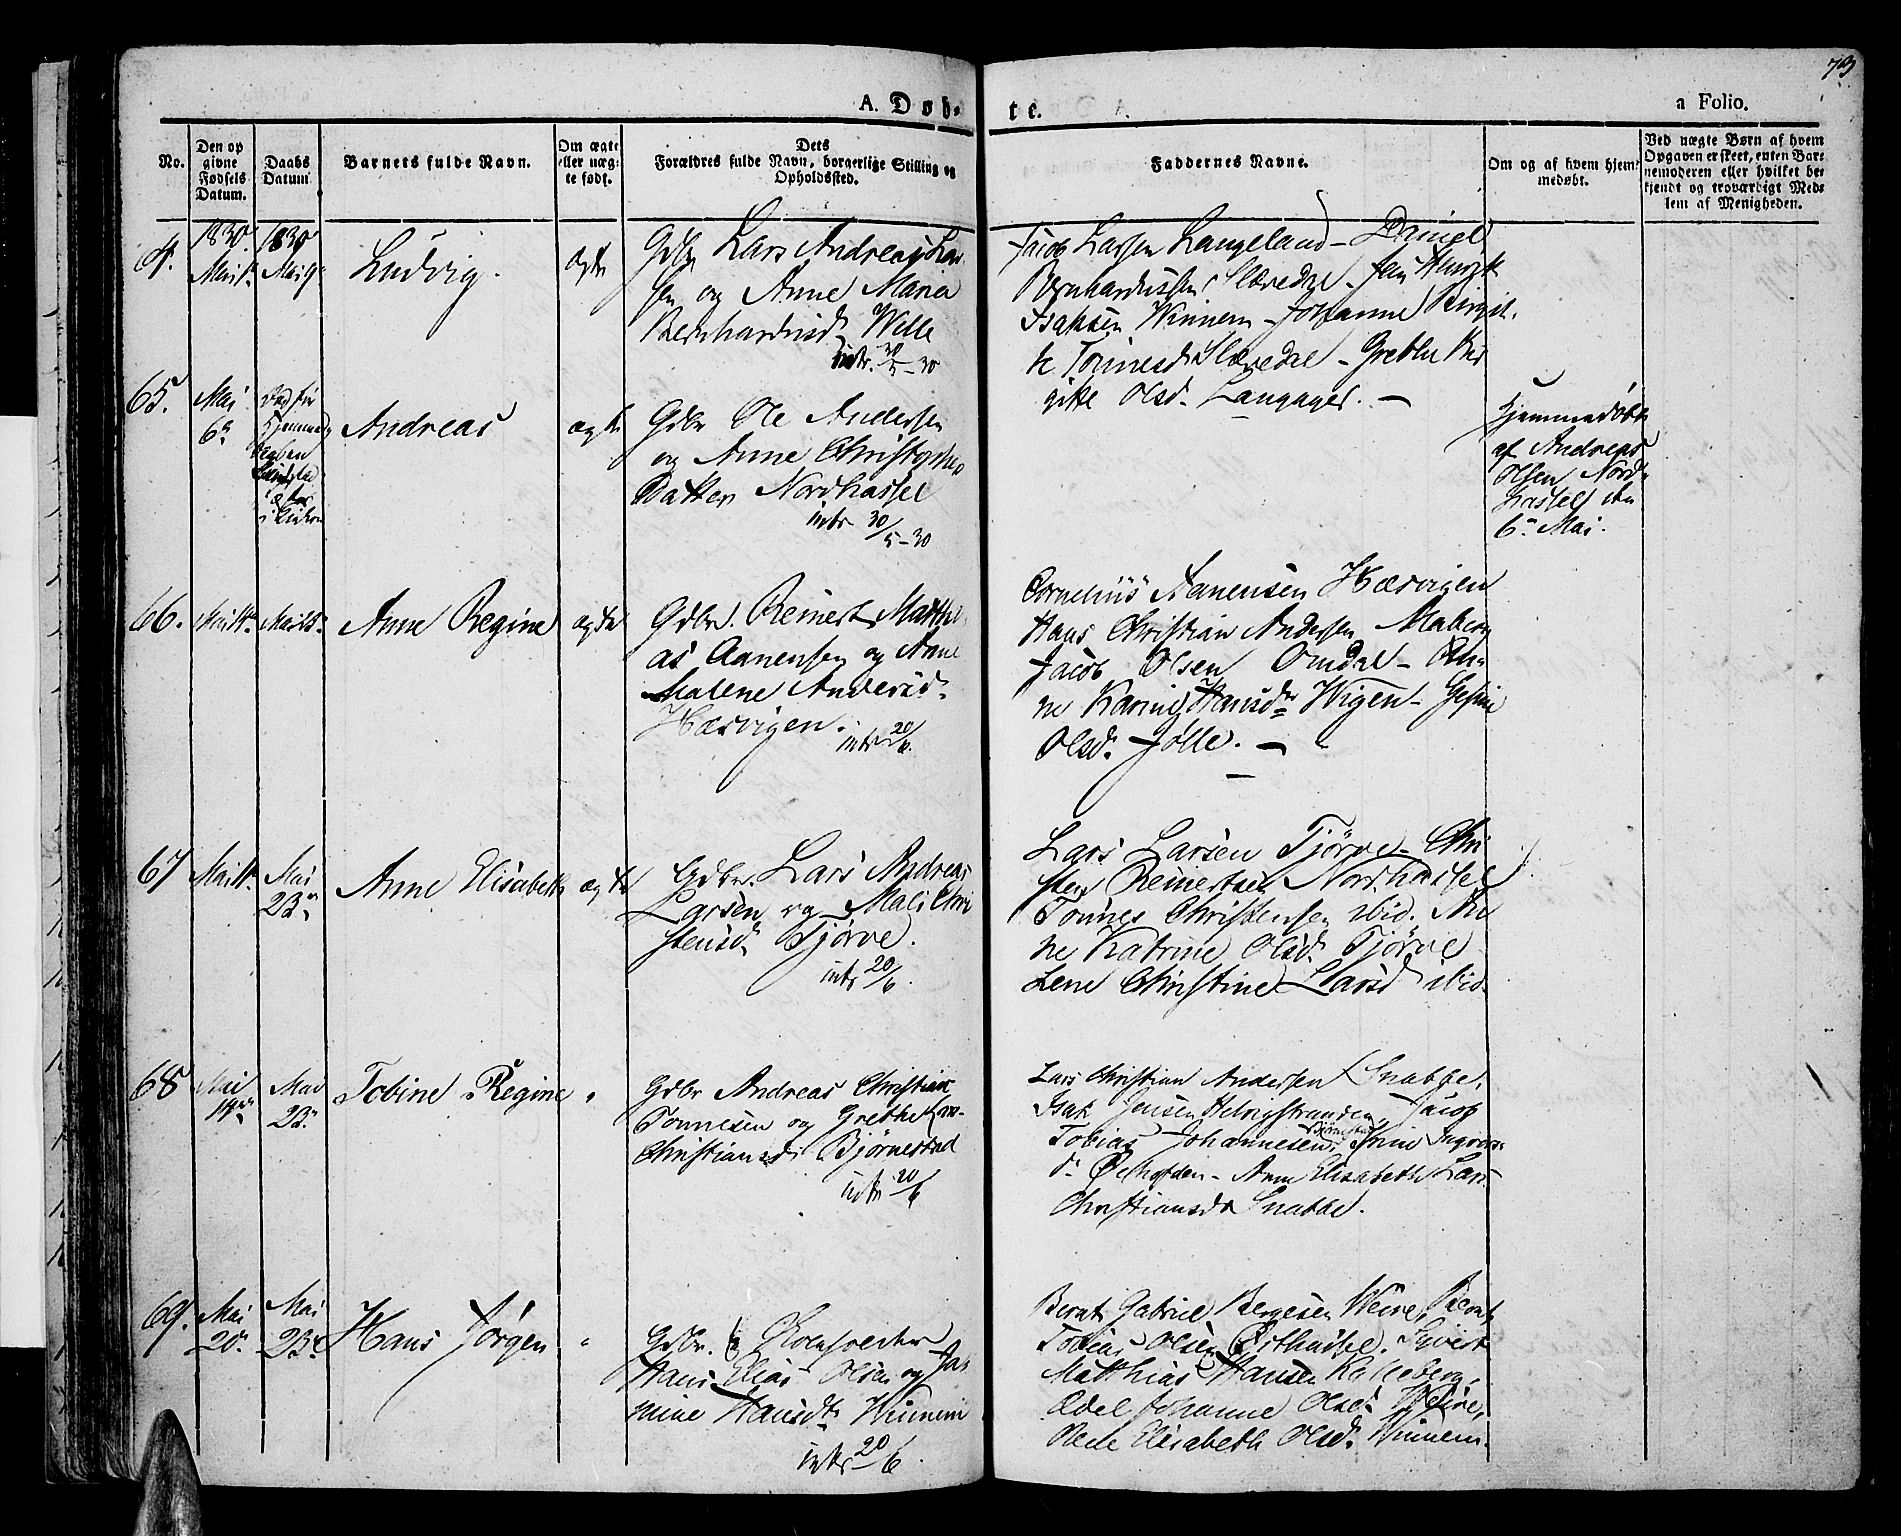 73
A. Døb-
te.
a Folio.
No.
Den op
givne
Fødsels
Datum.
Daabs
Datum
Barnets fulde Navn.
Om ægte
eller uæg-
te født.
Dets
Forældres fulde Navn, borgerlige Stilling og
Opholdssted.
Faddernes Navne.
Om og af hvem hjem-
medøbt.
Ved uægte Børn af hvem
Opgaven er skeet, enten Bar-
nemoderen eller hvilket be-
kjendt og troværdigt Med-
lem af Menigheden.
1830
1830
Ludvig.
ægte
Gdbr Lars Andreas Lar-
sen og Anne Maria
Bernhardusd. Welle
intr. 30/5-30
Jacob Larsen Langeland - Daniel
Bernhardussen Slevdal - Jens Henrik
Isaksen Winnem - Johanne Birgit-
te Tønnesd. Slevdal - Grethe Bir
gitte Olsd. Langager. -
65.
Mai
6
Andreas
ægte
Gdbr Ole Andersen
og Anne Christophe
Datter Nordhassel
intr 30/5-30
Hjemmedøbt
af Andreas
Olsen Nord-
hassel den
6 Mai.
66.
Anne Regine
ægte
Gdbr. Reinert Matthi
as Aanensen og Anne
Malene Andersd.
Hærvigen.
intr 20/6.
Cornelius Aanensen Hærvigen
Hans Christian Andersen Maberg
Jacob Olsen Omdal - An-
ne Karine Hansd. Wigen - Gesine
Olsd. Jølle. -
67
Mai
23
Anne Elisabeth
ægte
Gdbr. Lars Andreas
Larsen og Mali Chri
stensd. Tjørve.
intr 20/6.
Lars Larsen Tjørve - Chri
sten Reinertsen Nordhassel
Tønnes Christensen ibid. An
ne Katrine Olsd. Tjørve
Lene Christine Larsd ibid.
68
Mai
19
Mai
23
Tobine Regine
Gdbr Andreas Christian
Tønnesen og Grethe Lars-
Christiansd. Bjørnestad
intr 20/6
Lars Christian Andersen Snabbe,
Isak Jensen Helvigstranden, Jacob
Tobias Johannesen Bjørnestad,
- Anne Elisabeth Lars
Christiansdr Snabbe.
69.
Mai
20
Mai
23
Hans Jørgen
Gdbr.
Hans Elias Olsen og Ja-
mine Hansdr. Winnem
intr 20/6
Bernt Gabriel Bergesen Weive, Bernt
Tobias Olsen Østhassel. Syvert
Matthias Hansen Kalleberg,
Edel Johanne Olsd. Weive,
Olede Elisabeth Olsd. Winnem.